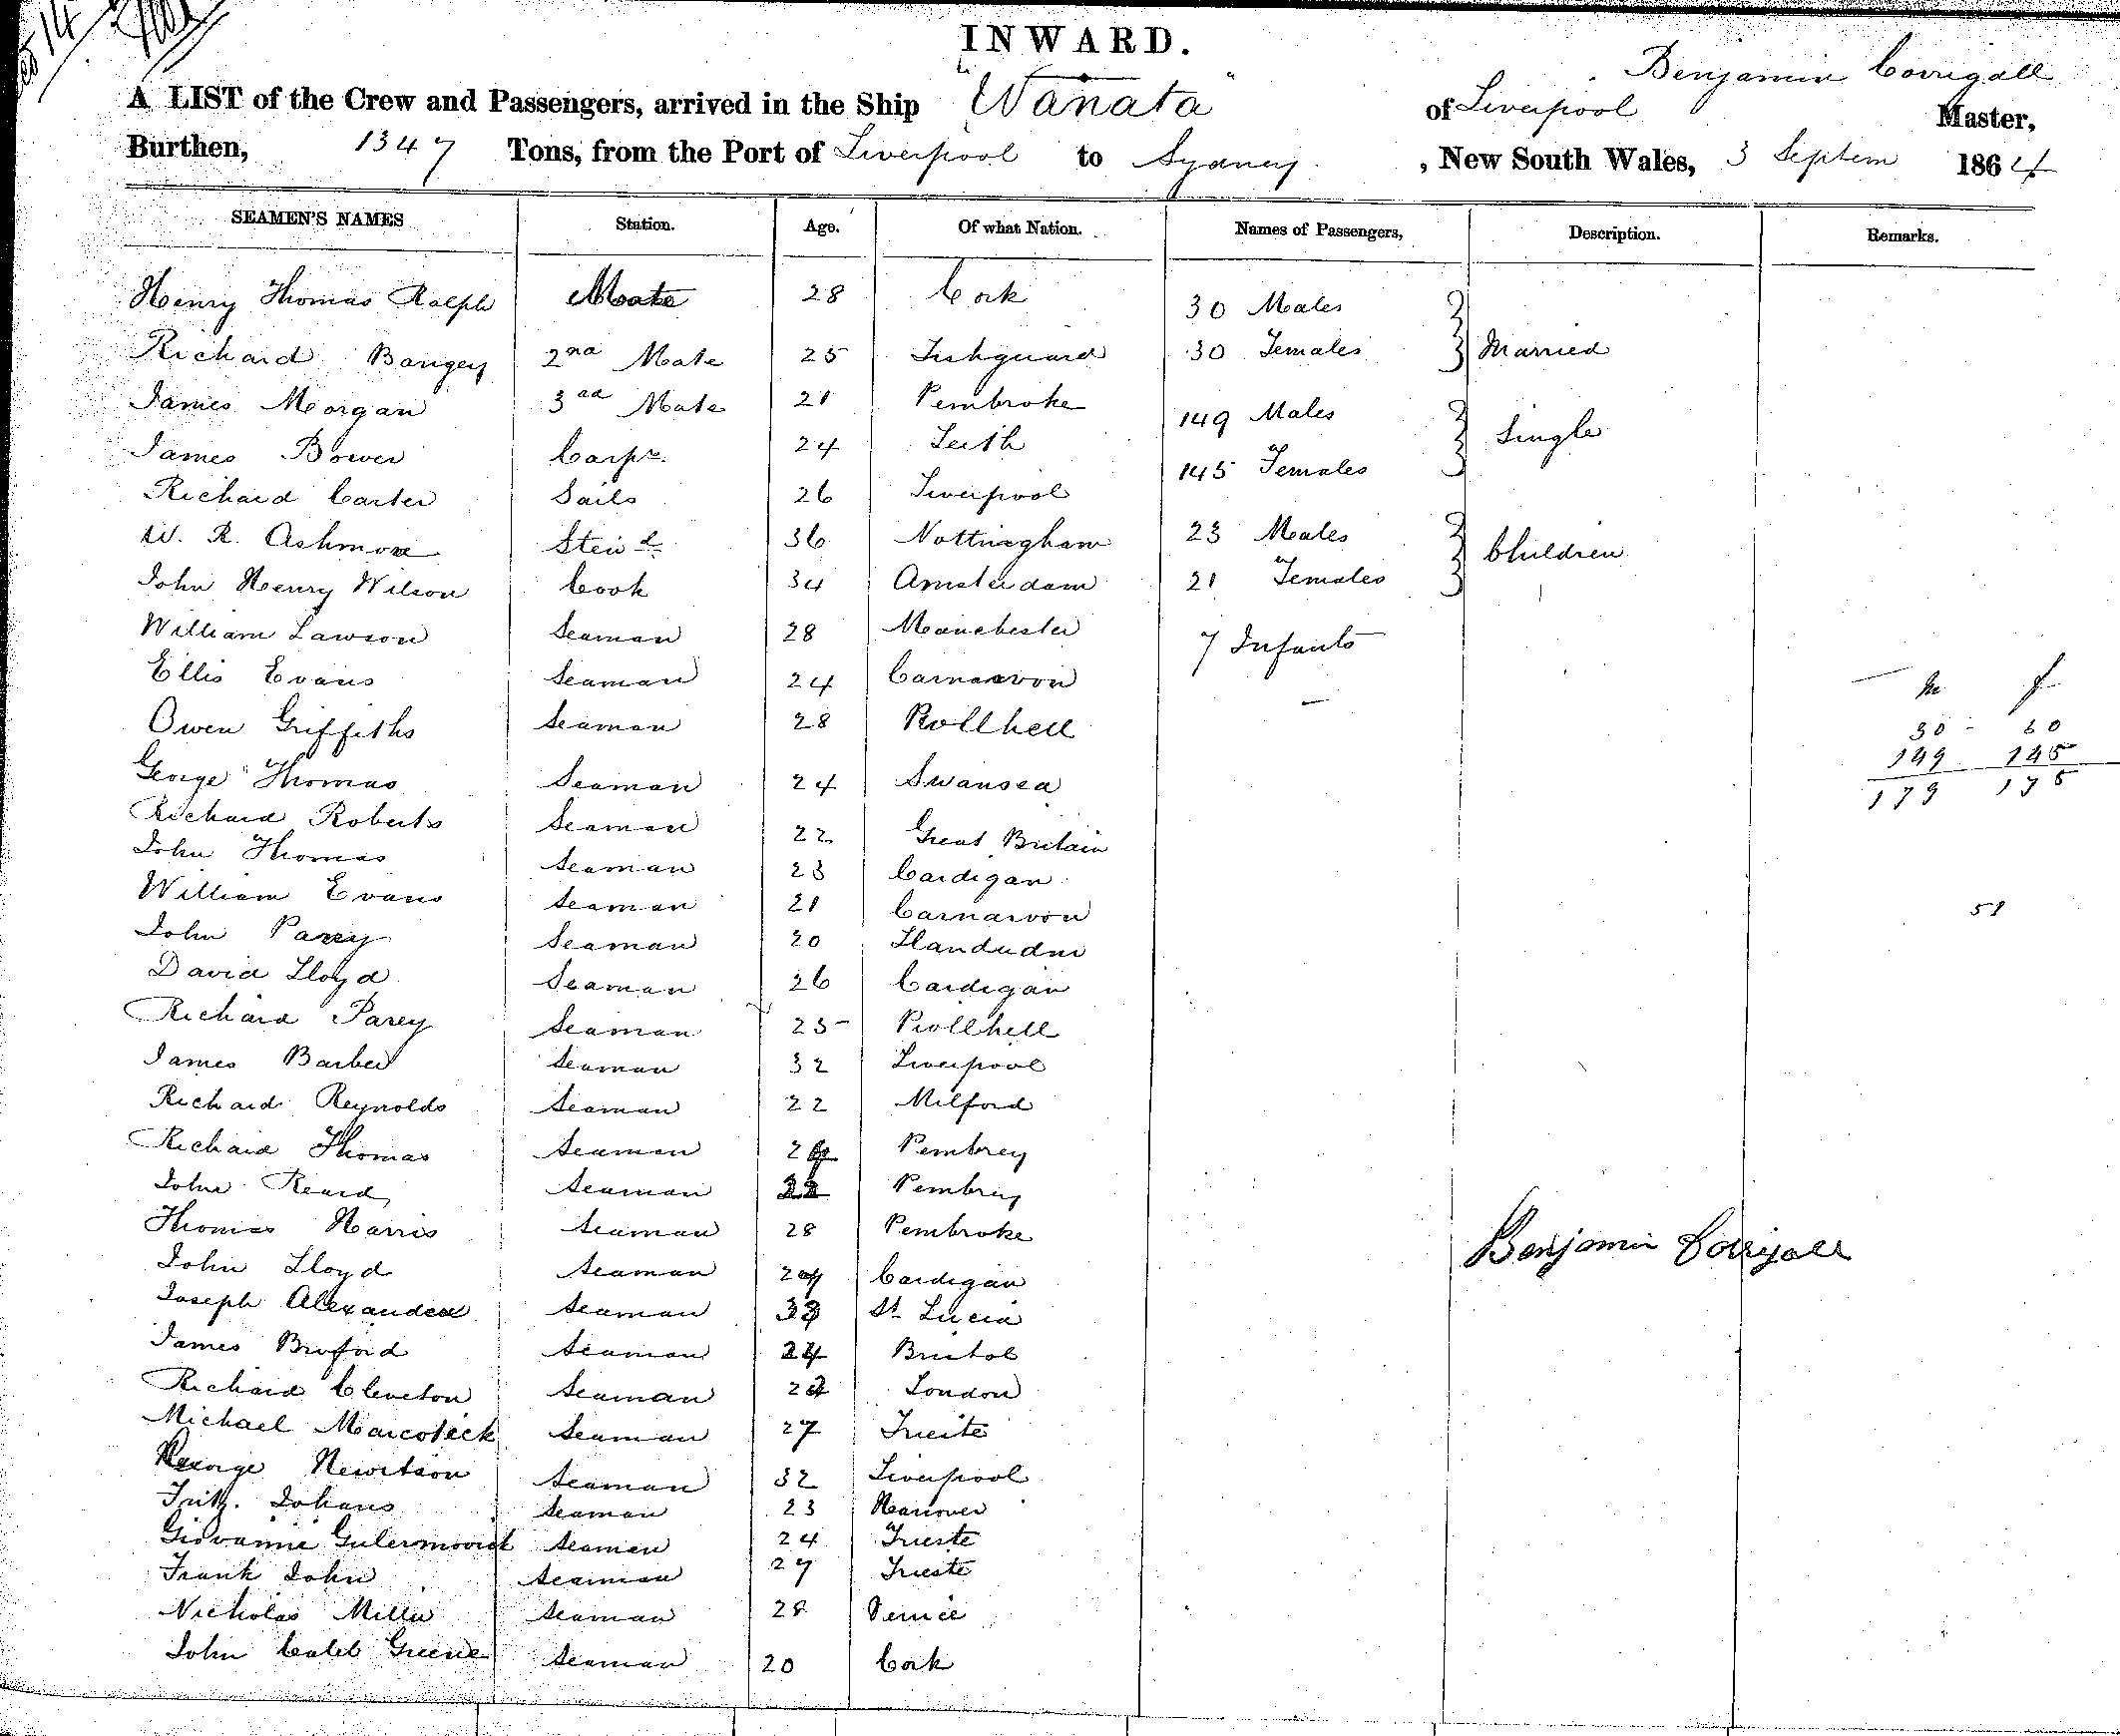 INWARD.
Benjamin Corrigall
A LIST of the Crew and Passengers, arrived in the Ship "Wanata" of Liverpool Master,
Burthen, 1347 Tons, from the Port of Liverpool to Sydney , New South Wales, 3 Septem 1864
SEAMEN'S NAMES Station. Age. Of what Nation. Names of Passengers, Description. Remarks.
Henry Thomas Ralph Mate 28 Cork 30 Males
Richard Bangey 2nd Mate 25 Fishguard 30 Females Married
James Morgan 3rd Mate 21 Pembroke 149 Males
James Bower Carpr. 24 Leith Single
145 Females
Richard Carter Sails 26 Liverpool
W. R. Ashmore Stewd 36 Nottingham 23 Males
Children
John Henry Wilson Cook 34 Amsterdam 21 Females
William Lawson Seaman 28 Manchester 7 Infants
Ellis Evans Seaman 24 Carnarvon m f
Owen Griffiths Seaman 28 Pollhell 30 - 60
149 145
George Thomas Seaman 24 Swansea 179 175
Richard Roberts Seaman 22 Great Britain
John Thomas Seaman 23 Cardigan
William Evans Seaman 21 Carnarvon 51
John Parry Seaman 20 Llandudni
David Lloyd Seaman 26 Cardigan
Richard Parey Seaman 25 Pollhell
James Barber Seaman 32 Liverpool
Richard Reynolds Seaman 22 Milford
Richard Thomas Seaman Pembrey
John Seaman 22 Pembrey
Thomas Harris Seaman 28 Pembroke
John Lloyd Seaman Cardigan
Joseph Alexander Seaman St Lucia
James Seaman 24 Bristol
Richard Cleveton Seaman London
Michael Marcoleck Seaman 27 Trieste
George Hewitson Seaman 32 Liverpool
Fritz. Johans Seaman 23 Hanover
Giovannie Seaman 24 Trieste
Frank John Seaman 27 Trieste
Nicholas Miller Seaman 28 Venice
John Caleb Greene Seaman 20 Cork
Benjamin Corrigall